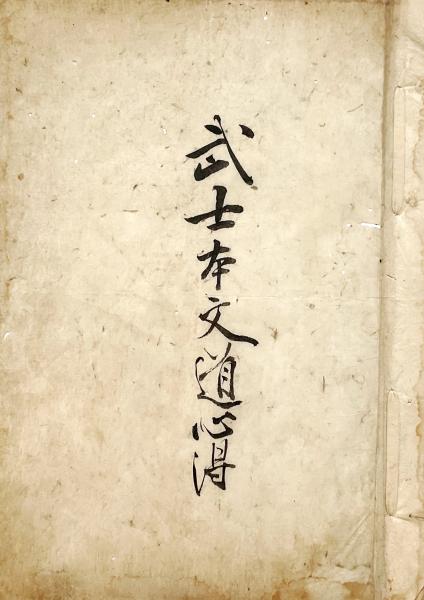 武士本文道心得